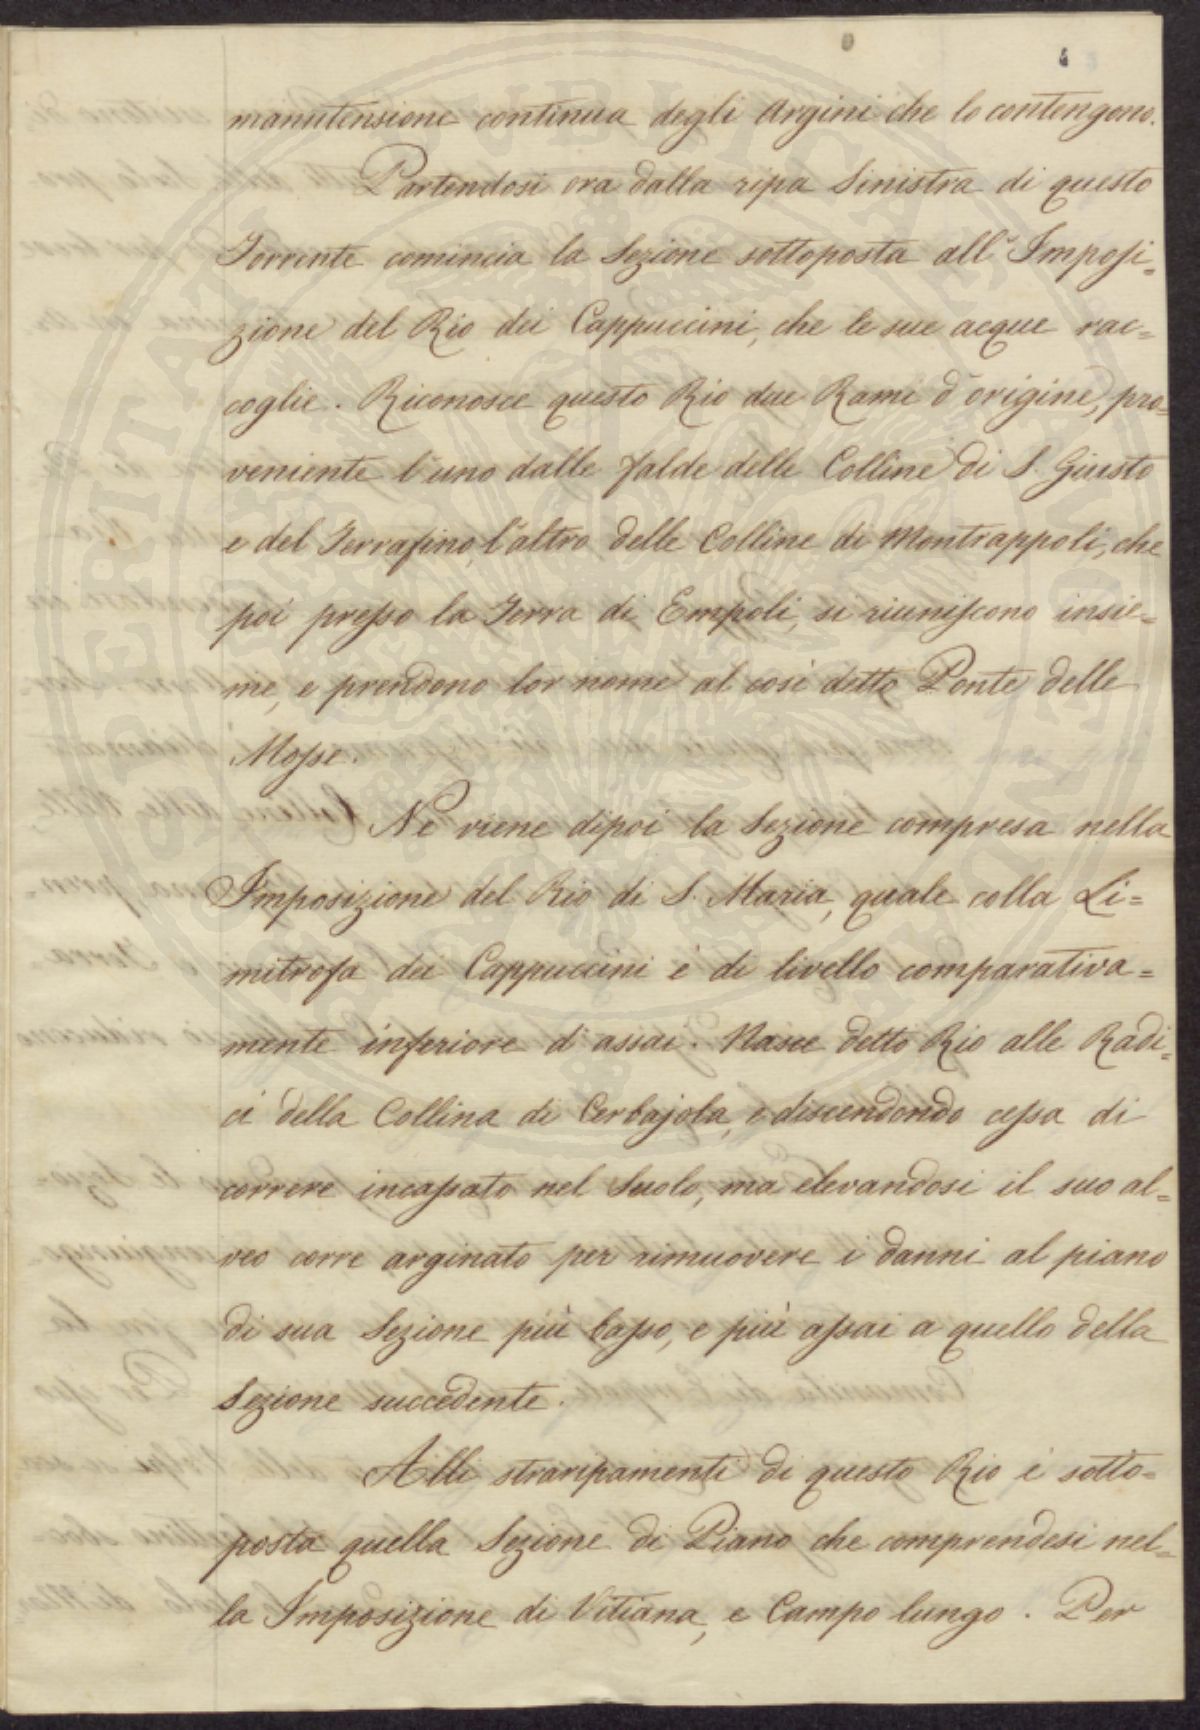 manutensione continua degli Argini che lo contengono.
Partendosi ora dalla ripa Sinistra di questo
Torrente comincia la Sezione sottoposta all' Imposi=
zione del Rio dei Cappuccini, che le sue acque rac=
coglie. Riconosce questo Rio due Rami d'origine, pro=
veniente l'uno dalle falde delle Colline di S. Giusto
e del Terrafino, l'altro delle Colline di Montrappoli, che
poi presso la Terra di Empoli, si riuniscono insie=
me, e prendono lor nome al così detto Ponte delle
Mosse.
Ne viene dipoi la Sezione compresa nella
Imposizione del Rio di S. Maria, quale colla Li=
mitrofa dei Cappuccini è di livello comparativa=
mente inferiore d'assai. Nasce detto Rio alle Radi=
ci della Collina di Cerbajola, e discendendo cessa di
correre incassato nel Suolo, ma elevandosi il suo al=
veo corre arginato per rimuovere i danni al piano
di sua Sezione più basso, e più assai a quello della
Sezione succedente.
Alli straripamenti di questo Rio è sotto=
posta quella Sezione di Piano che comprendesi nel=
la Imposizione di Vitiana, e Campo lungo. Per